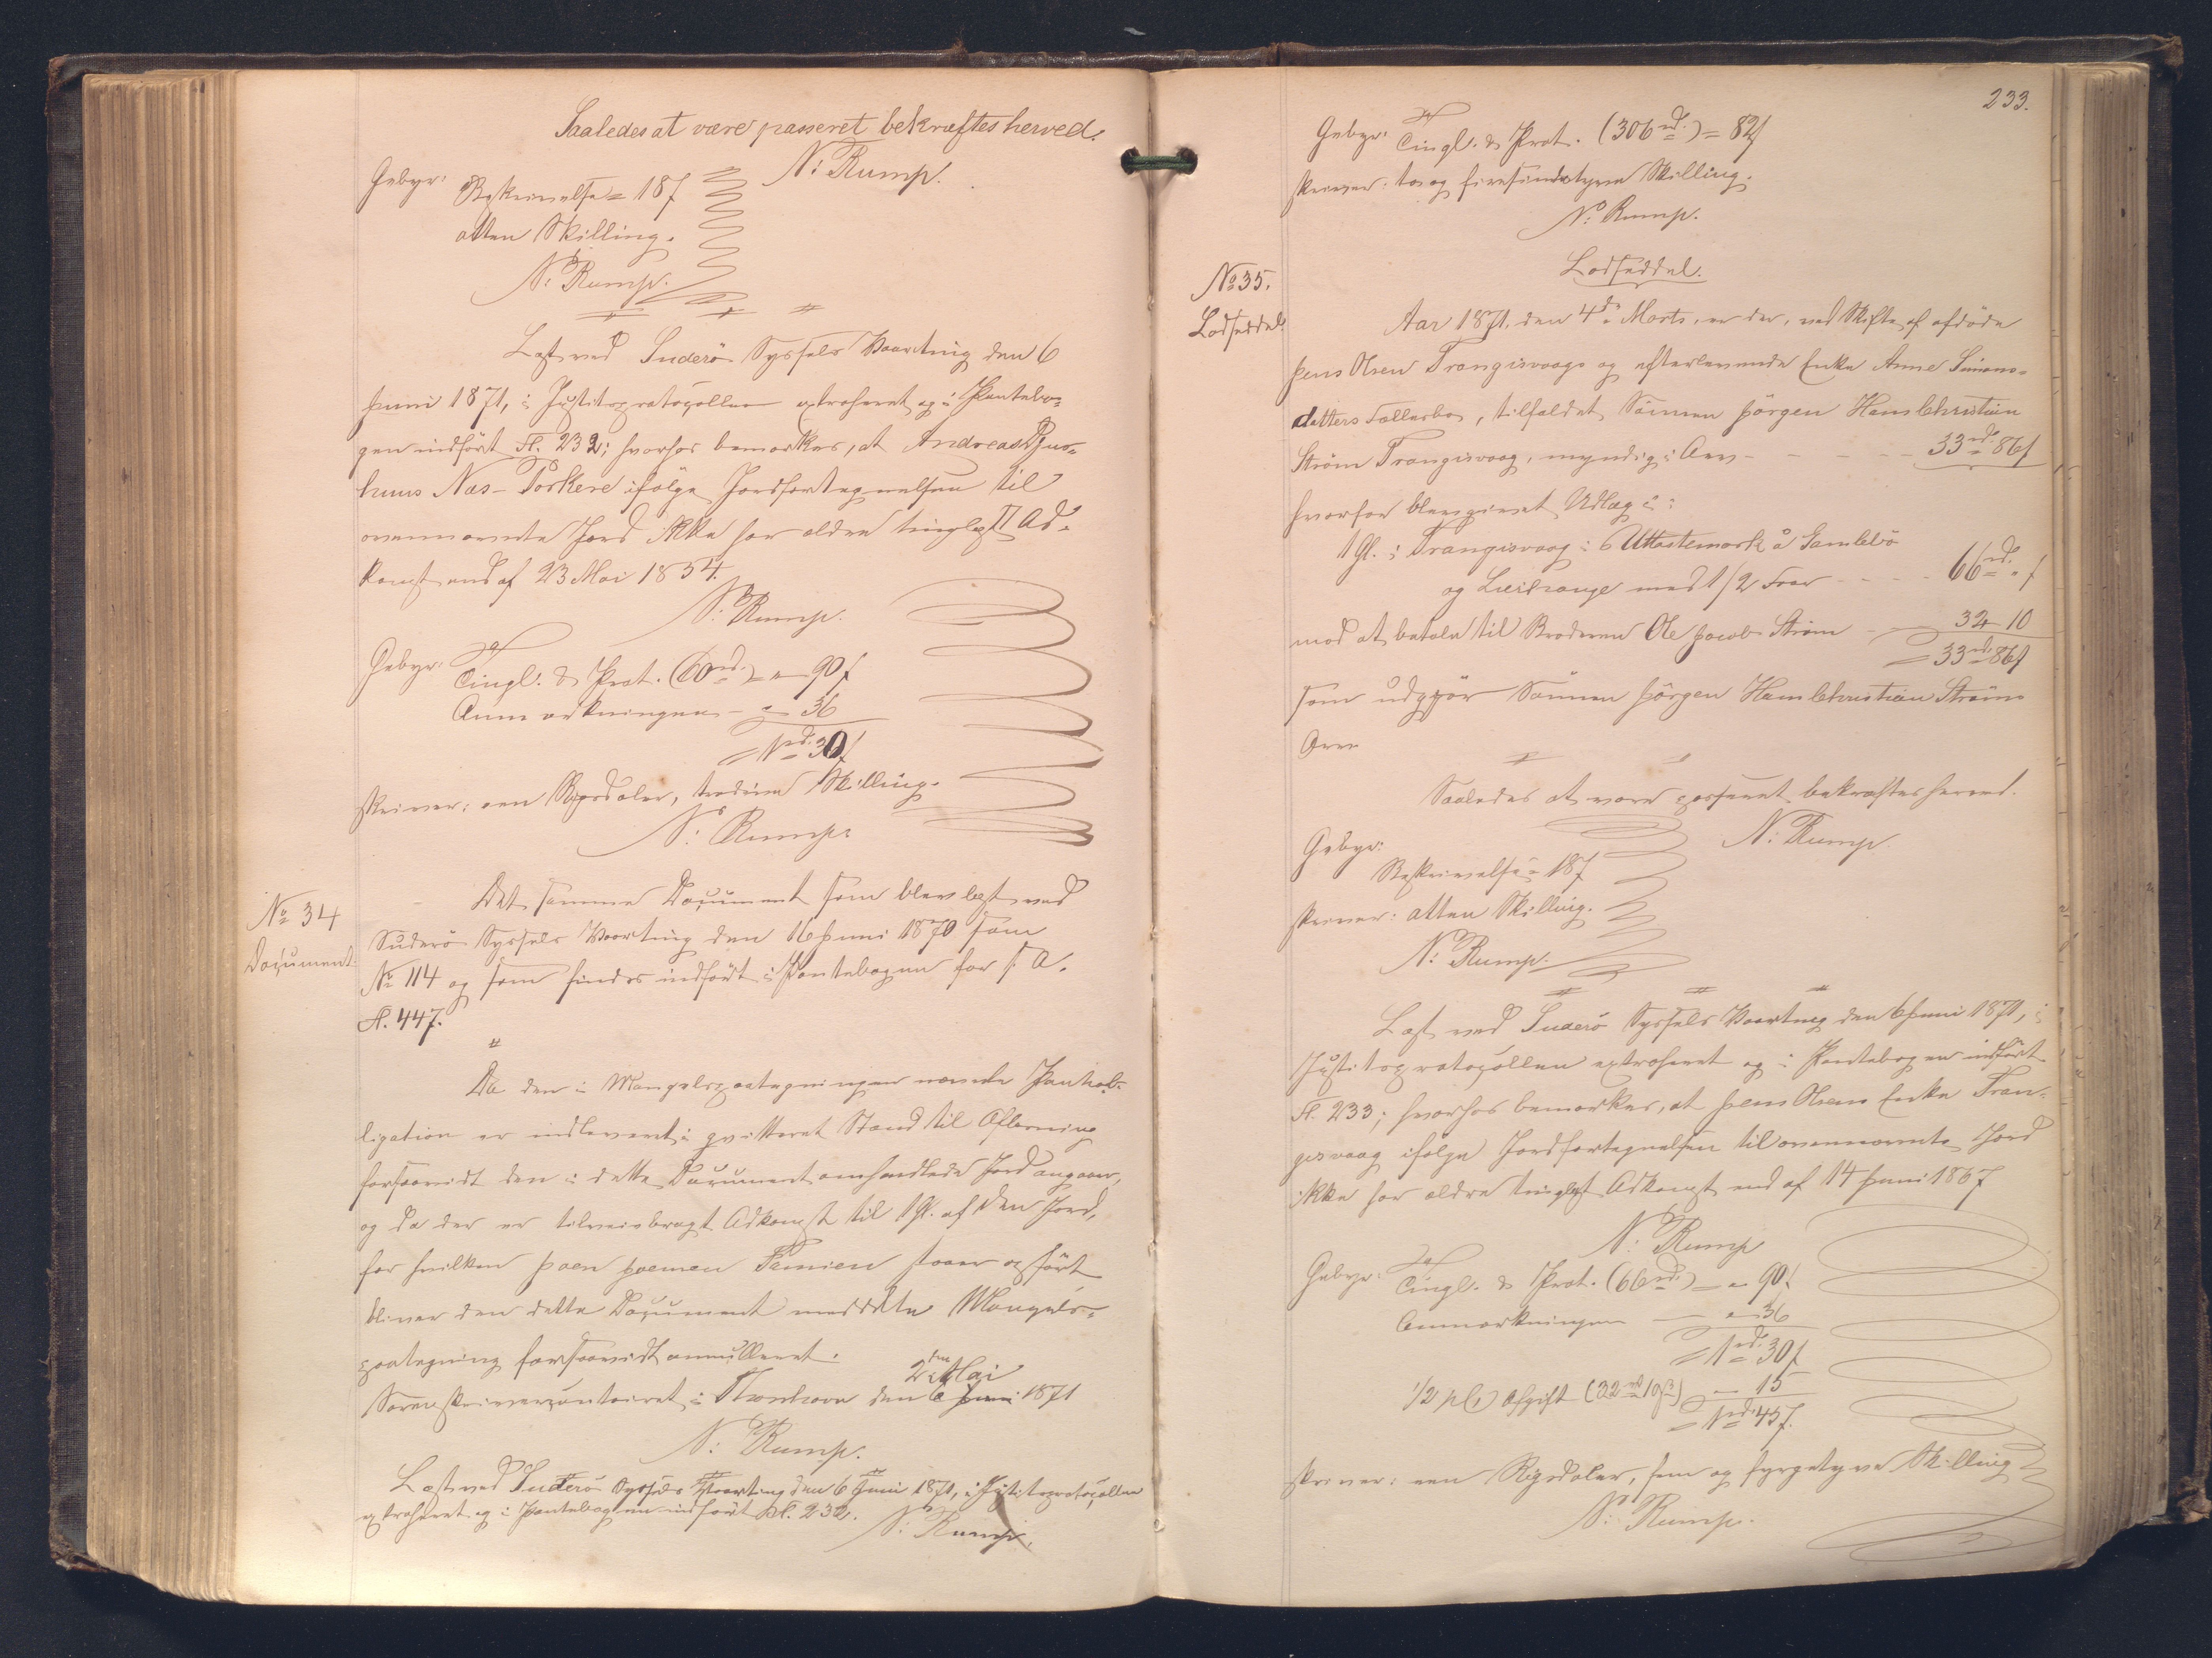 Saaledes at være passeret bekræftes herved.
N: Rump.
Gebyr:
Beskrivelse = 18 ſ
atten Skilling.
N: Rump.
Læst ved Suderö Syssels Vaarting den 6
Juni 1871, i Justitsprotocollen extraheret og i Panteboꝛ
gen indført Fl. 232; hvorhos bemærkes, at Andreas
huus Næs-Porkere ifølge Jordfortegnelsen til
ovennævnte Jord ikke har ældre tinglæst Ad-
komst end af 23 Mai 1854.
N: Rump.
Gebyr: Tingl. & Prot. (60 rd.) = „ 90 ſ
Anmærkningen - „ 36
= 1 rd. 30 ſ
skriver: een Rigsdaler, tredive Skilling.
N: Rump.
No 34
Document.
Det samme Document som blev læst ved
Suderö Syssels Vaarting den 16 Juni 1870 som
No 114 og som findes indført i Pantebogen for s. A.
Fl. 447.
Da den i Mangelspaategningen nævnte Pantob-
ligation er indleveret i qvitteret Stand til Aflæsning
forsaavidt den i dette Document omhandlede Jord angaaer,
og da der er tilveiebragt Adkomst til 1 Gl. af den Jord,
for hvilken Joen Joensen Famien staaer opført
bliver den dette Document meddelte Mangels-
paategning forsaavidt annulleret.
2den Mai
Sorenskrivercontoiret i Thorshavn den 6 Juni 1871
N: Rump.
Læst ved Suderö Syssels Vaarting den 6 Juni 1871, i Justitsprotocollen
extraheret og i Pantebogen indført Fl. 232.
N: Rump.
233.
Gebyr: Tingl. & Prot. (306 rd.) = 82 ſ
skriver: to og firesindstyve Skilling.
N: Rump.
No 35.
Lodseddel.
Lodseddel.
Aar 1871, den 4de Marts, er der, ved Skifte af afdøde
Jens Olsen Trangisvaags og efterlevende Enke Anne Simons-
datters Fællesbo, tilfaldet Sønnen Jörgen Hans Christian
Ström Trangisvaag, myndig i Arv - - - - - 33 rd. 86 ſ
hvorfor blev givet Udlæg i:
1 Gl. i Trangisvaag i Uttastemark å Gamlebö
og med 1/2 Faar - - - - 66 rd. „ ſ
mod at betale til Broderen Ole Jacob Ström - 32 - 10
= 33 rd. 86 ſ
som udgjör Sønnen Jörgen Hans Christian Ströms
Arv
Saaledes at være passeret bekræftes herved.
N: Rump.
Gebyr:
Beskrivelse = 18 ſ
skriver: atten Skilling.
N: Rump.
Læst ved Suderö Syssels Vaarting den 6 Juni 1871, i
Justitsprotocollen extraheret og i Pantebogen indført
Fl. 233; hvorhos bemærkes, at Jens Olsens Enke Tran-
gisvaag ifølge Jordfortegnelsen til ovennævnte Jord
ikke har ældre tinglæst Adkomst end af 14 Juni 1867
N: Rump
Gebyr: Tingl. & Prot. (66 rd.) = „ 90 ſ
Anmærkningen - „ 36
= 1 rd. 30 ſ
1/2 pCt Afgift (32 rd 10 ß) - 15
= 1 rd. 45 ſ.
skriver: een Rigsdaler, fem og fyrgetyve Skilling
N: Rump.